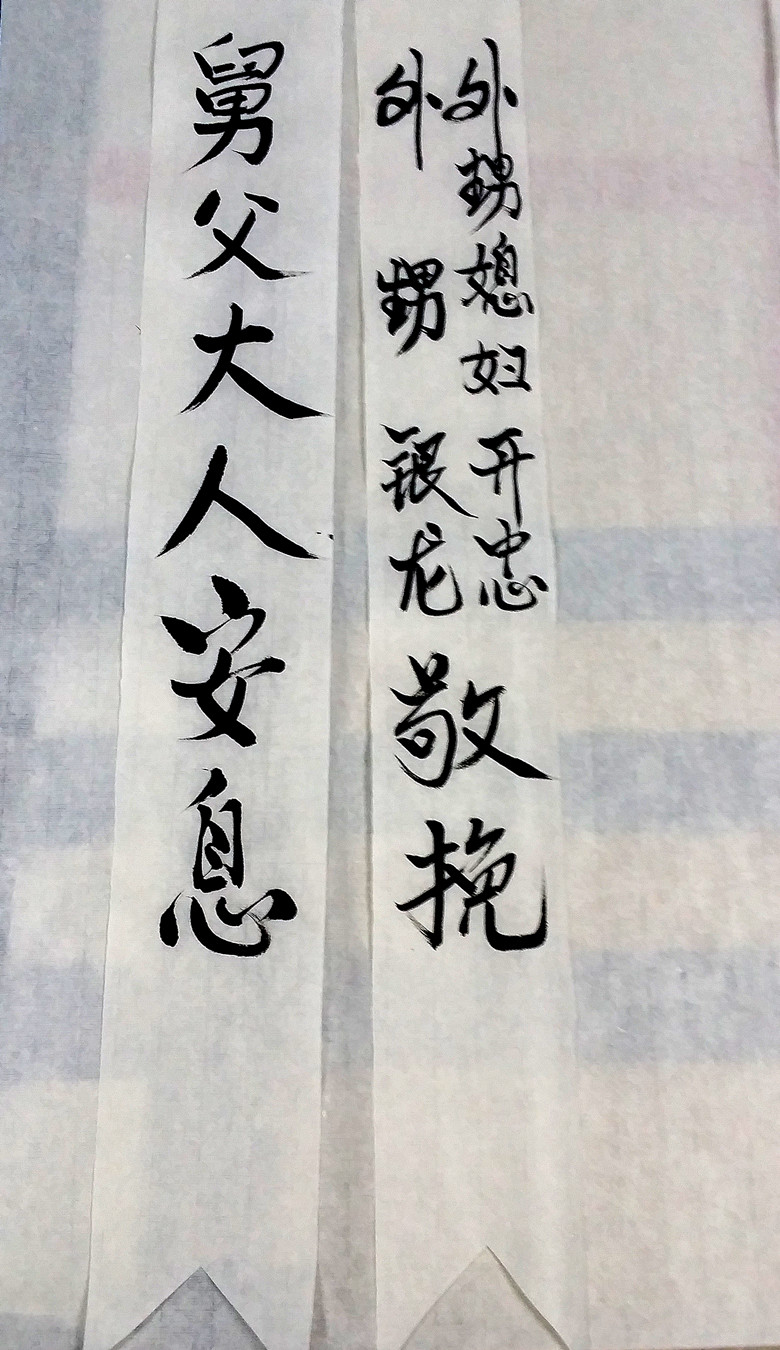 舅父大人安息
外甥银龙
外甥媳妇开忠
敬挽